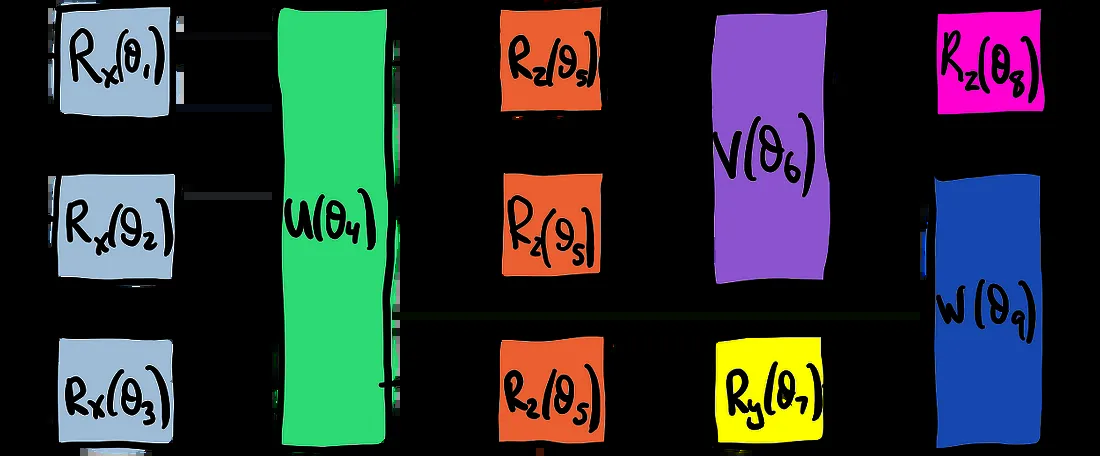 Rx(θ1)
Rx(θ2)
Rx(θ3)
U(θ4)
Rz(θ5)
Rz(θ5)
Rz(θ5)
V(θ6)
Ry(θ7)
Rz(θ8)
W(θ9)